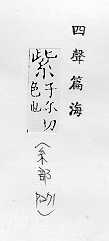 四聲篇海
紫子尔切
色也
(糸部